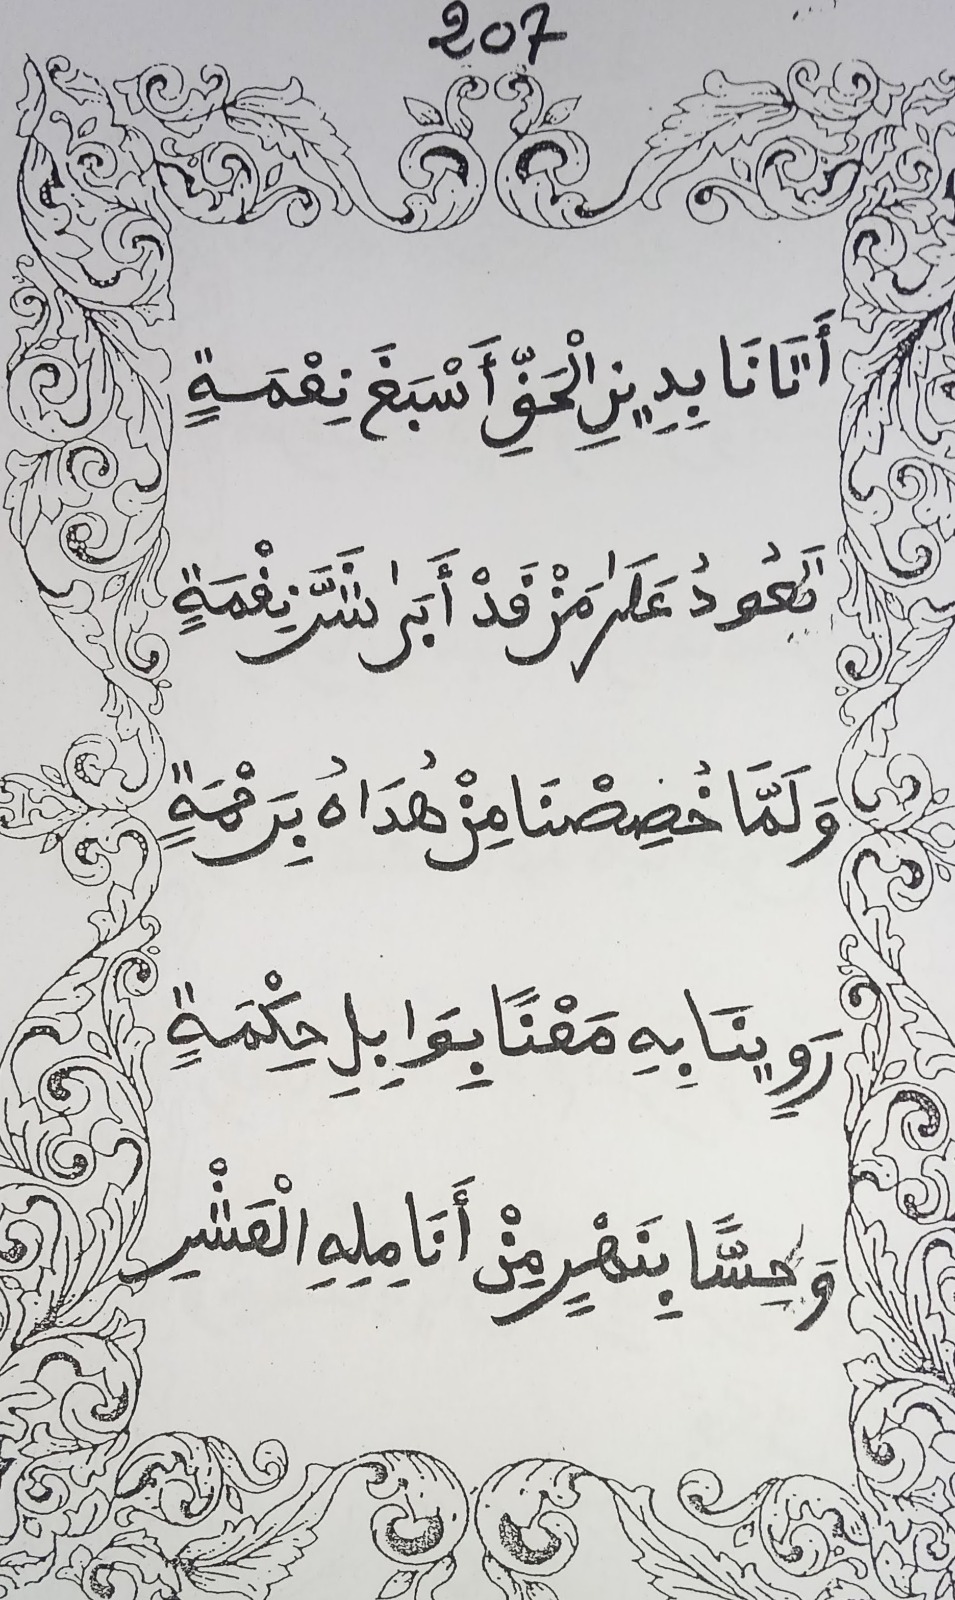 207
أَتَانَا بِدِينِ الْحَقِّ أَسْبَغَ نِعْمَةٍ
تَعُودُ عَلَى مَنْ قَدْ أَبَى شَرَّ نِقْمَةٍ
وَلَمَّا خُصِصْنَا مِنْ هُدَاهُ بِرَحْمَةٍ
رَوِينَا بِهِ مَعْنًا بِوَابِلِ حِكْمَةٍ
وَحِسًّا بِنَهْرٍ مِنْ أَنَامِلِهِ الْعَشْرِ